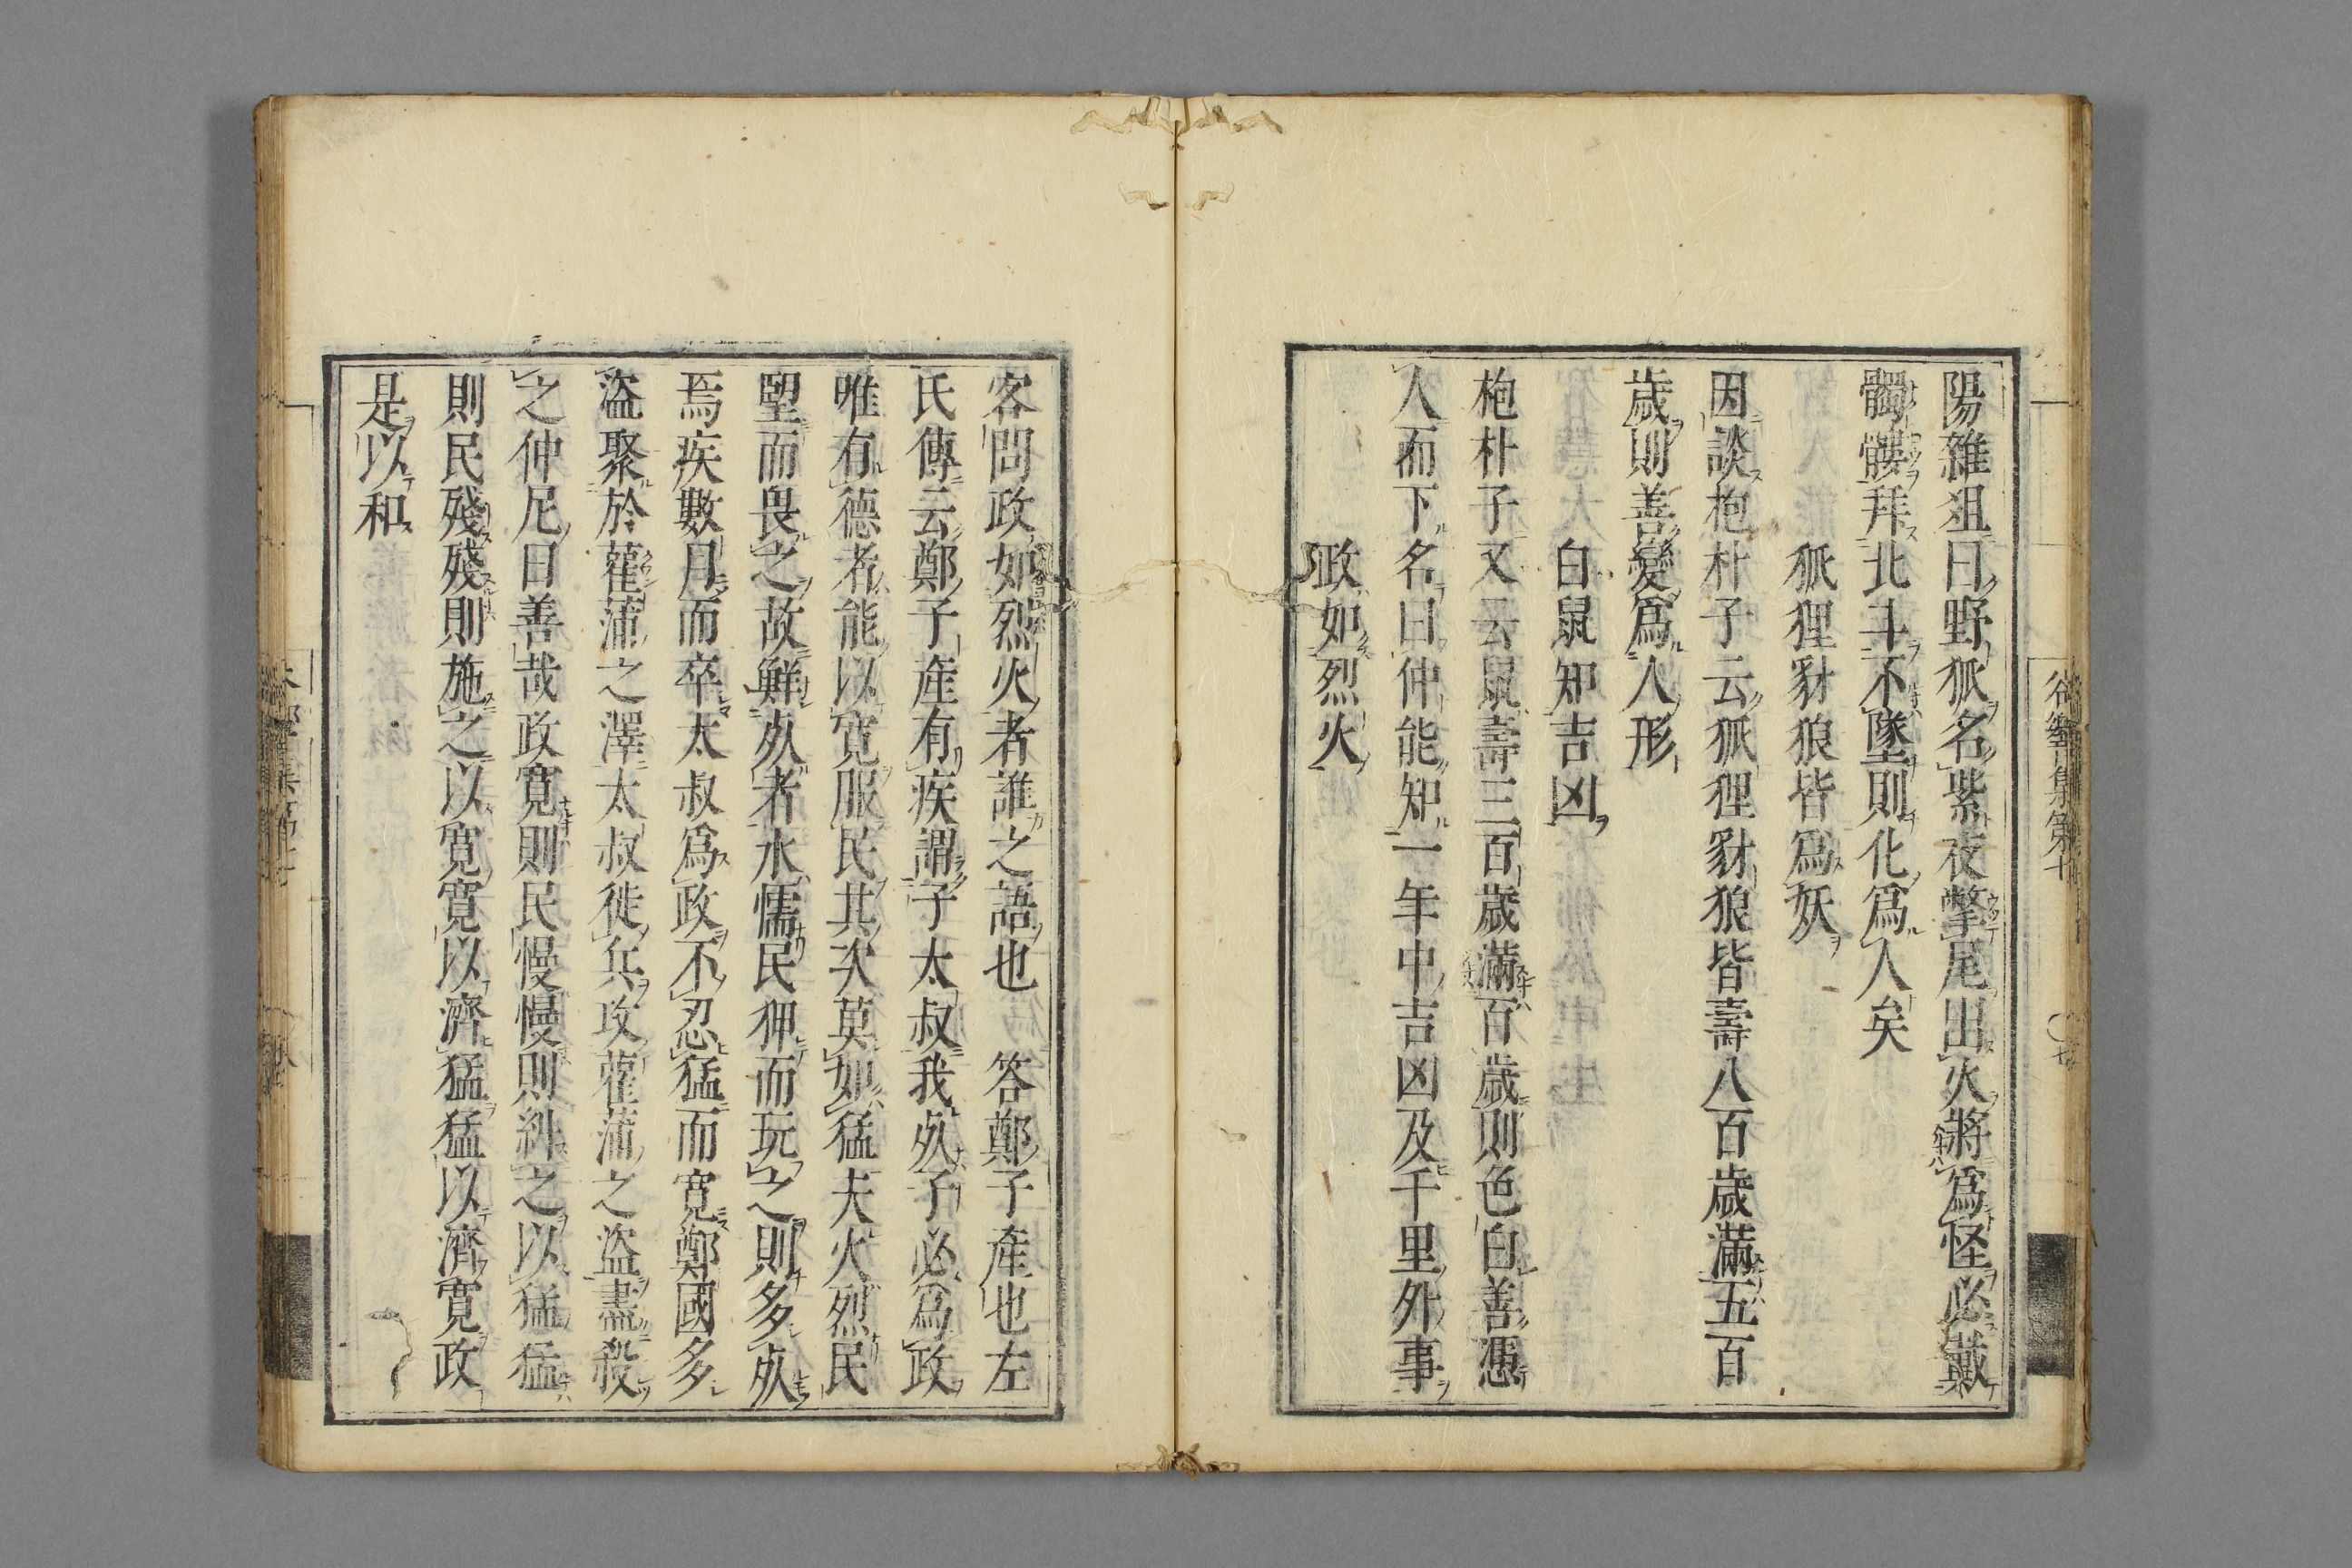 陽雜俎曰野狐名紫夜擊尾出火將爲怪必戴
髑髏拜北斗不墜則化爲人矣
狐狸豺狼皆爲妖
因談抱朴子云狐狸豺狼皆壽八百歲滿五百
歲則善變爲人形
白鼠知吉凶
抱朴子又云鼠壽三百歲滿百歲則色白善憑
人而下名曰仲能知一年中吉凶及千里外事
政如烈火
客問政如烈火者誰之語也 答鄭子產也左
氏傳云鄭子產有疾謂子太叔我死子必爲政
唯有德者能以寬服民其次莫如猛夫火烈民
望而畏之故鮮死者水懦民狎而玩之則多死
焉疾數月而卒太叔爲政不忍猛而寬鄭國多
盜聚於雚蒲之澤太叔徙兵攻雚蒲之盜盡殺
之仲尼曰善哉政寬則民慢慢則糾之以猛猛
則民殘殘則施之以寬寬以濟猛猛以濟寬政
是以和